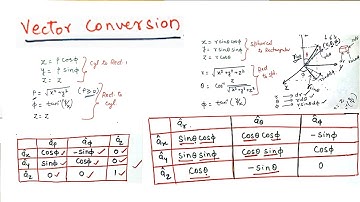 Vector Conversion
x = ρ cosφ
y = ρ sinφ
z = z
Cyl to Rect.
ρ = √x²+y² (ρ≥0)
φ = tan⁻¹(y/x)
z = z
Rect. to Cyl.
x = r sinθ cosφ
y = r sinθ sinφ
z = r cosθ
Spherical to Rectangular
r = √x²+y²+z²
θ = cos⁻¹ z/√x²+y²+z²
φ = tan⁻¹(y/x)
âρ âφ âz
âx cosφ -sinφ 0
ây sinφ cosφ 0
âz 0 0 1
âr âθ âφ
âx sinθ cosφ cosθ cosφ -sinφ
ây sinθ sinφ cosθ sinφ cosφ
âz cosθ -sinθ 0